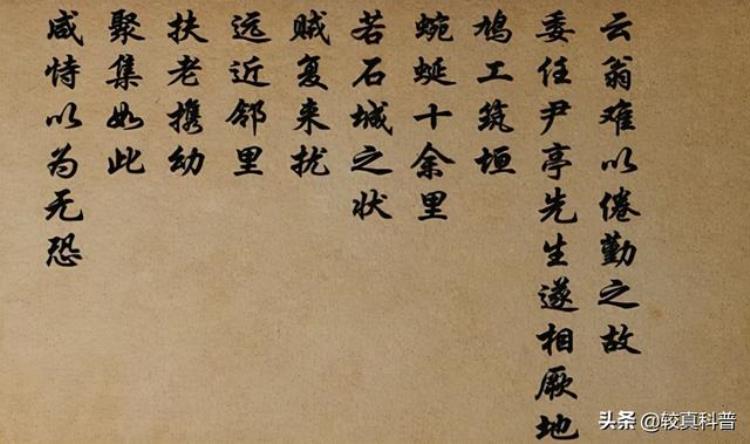 云翁难以倦勤之故
委任尹亭先生遂相厥地
鸠工筑垣
蜿蜒十余里
若石城之状
贼复来扰
远近邻里
扶老携幼
聚集如此
咸恃以为无恐
头条 @较真科普